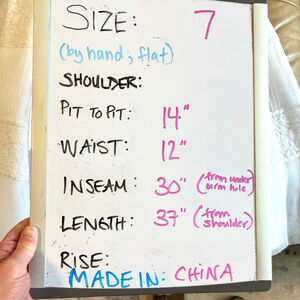 SIZE: 7
(by hand; flat)
SHOULDER:
PIT TO PIT: 14"
WAIST: 12"
INSEAM: 30" (from under arm hole)
LENGTH: 37" (from shoulder)
RISE:
MADE IN: CHINA